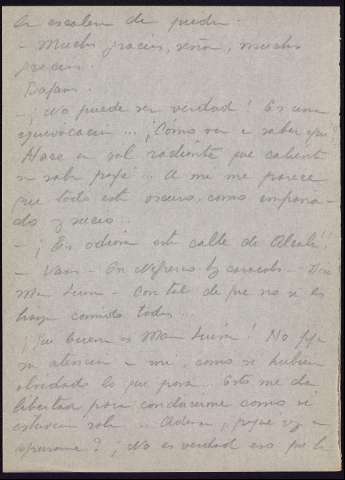 la escalera de piedra.
- Muchas gracias, señor, muchas
gracias.
Bajan.
- ¡No puede ser verdad! Es una
equivocación ... ¡Cómo van a saber que
Hace un sol radiante que calienta
su papá ... A mi me parece
que todo está oscuro, como empaña-
do y sucio ...
- ¡Es odiosa esta calle de Alcalá!
- Vaya - En Negresco hay caracoles -
Mari Luisa - Con tal de que no se los
hayan comido todos ...
¡Qué buena es Mari Luisa! No fija
su atención en mi, como si hubiera
olvidado lo que pasa ... Esto me da
libertad para conducirme como si
estuviera sola ... Además, ¿por qué voy a
apurarme? ¡No es verdad eso que le